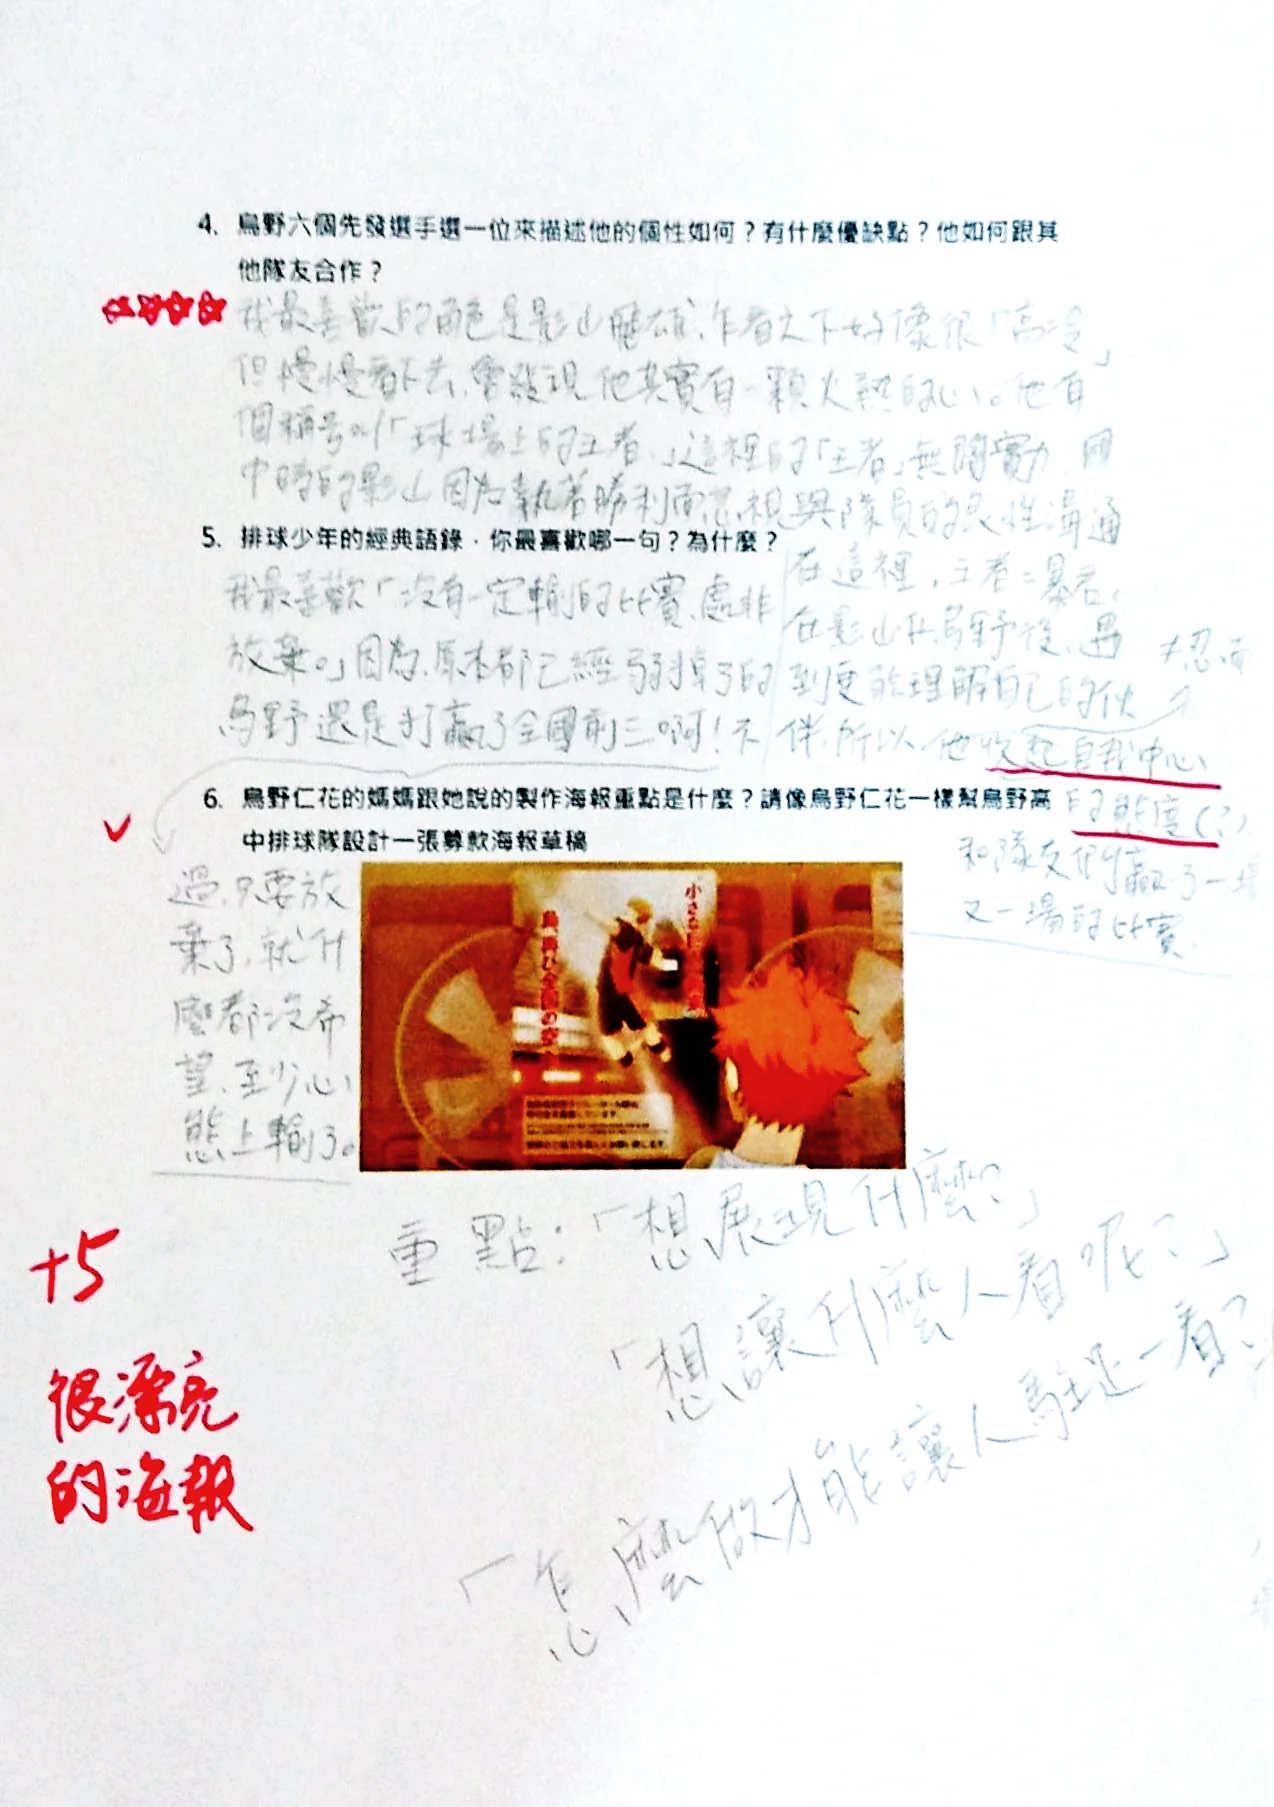 4. 烏野六個先發選手選一位來描述他的個性如何？有什麼優缺點？他如何跟其
他隊友合作？
我最喜歡的角色是影山飛雄，乍看之下好像很「高冷」
但慢慢看下去，會發現他其實有一顆火熱的心。他有
個稱號叫「球場上的王者」，這裡的「王者」無關實力，國
中時的影山因為執著勝利而忽視與隊員的良性溝通
在這裡，王者=暴君。
在影山升烏野後，遇
到更能理解自己的伙
伴，所以，他收起自我中心
的態度(?)
和隊友們贏了一場
又一場的比賽。
≠忍而
5. 排球少年的經典語錄，你最喜歡哪一句？為什麼？
我最喜歡「沒有一定輸的比賽，處非
放棄。」因為，原本都已經弱掉了的
烏野還是打贏了全國前三啊！不
過，只要放
棄了，就什
麼都沒希
望，至少心
態上輸了。
6. 烏野仁花的媽媽跟她說的製作海報重點是什麼？請像烏野仁花一樣幫烏野高
中排球隊設計一張募款海報草稿
小さな
重點：「想展現什麼？」
「想讓什麼人看呢？」
「怎麼做才能讓人駐足一看？
+5
很漂亮
的海報